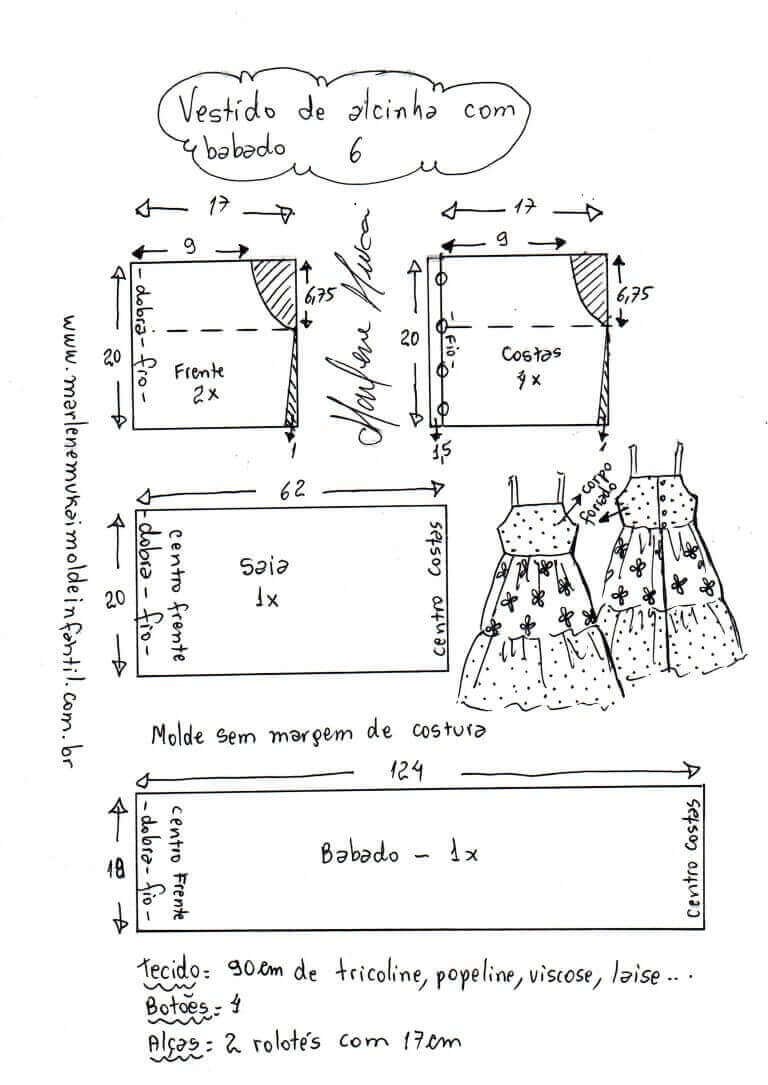 Vestido de alcinha com
babado 6
17
9
20
- dobra - fio -
6,75
Frente
2x
1
Marlene Mukai
17
9
20
- Fio -
6,75
Costas
4x
1,5
1
www.marlenemukaimoldeinfantil.com.br
62
20
- dobra - fio -
centro frente
Saia
1x
centro costas
corpo
forrado
Molde sem margem de costura
124
18
- dobra - fio -
centro Frente
Babado - 1x
Centro Costas
Tecido = 90cm de tricoline, popeline, viscose, laise...
Botões = 4
Alças = 2 rolotés com 17cm